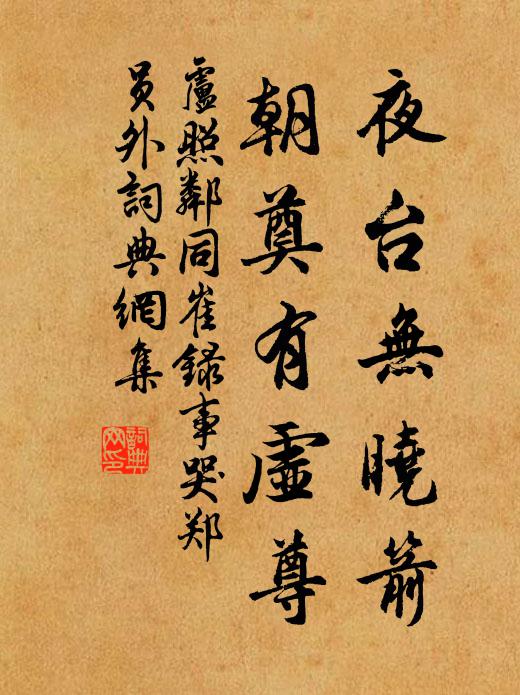 夜台無曉箭
朝奠有虛尊
盧照鄰同崔錄事哭郑
员外詞典網集
詞典网印